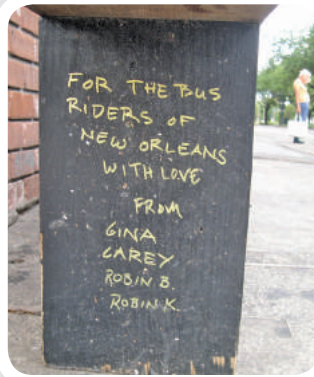 FOR THE BUS
RIDERS OF
NEW ORLEANS
WITH LOVE
FROM
GINA
CAREY
ROBIN B.
ROBIN K.